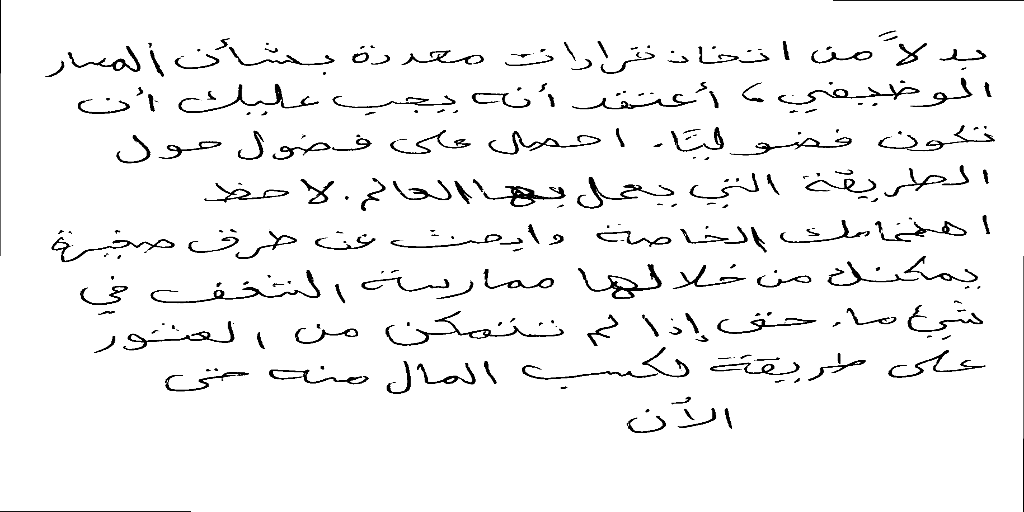 بدلاً من اتخاذ قرارات محددة بشأن المسار
الوظيفي، أعتقد أنه يجب عليك أن
تكون فضوليًا. احصل على فضول حول
الطريقة التي يعمل بها العالم. لاحظ
اهتمامك الخاصة وابحث عن طرق صغيرة
يمكنك من خلالها ممارسة التثقف في
شيء ما. حتى إذا لم تتمكن من العثور
على طريقة لكسب المال منه حتى
الآن